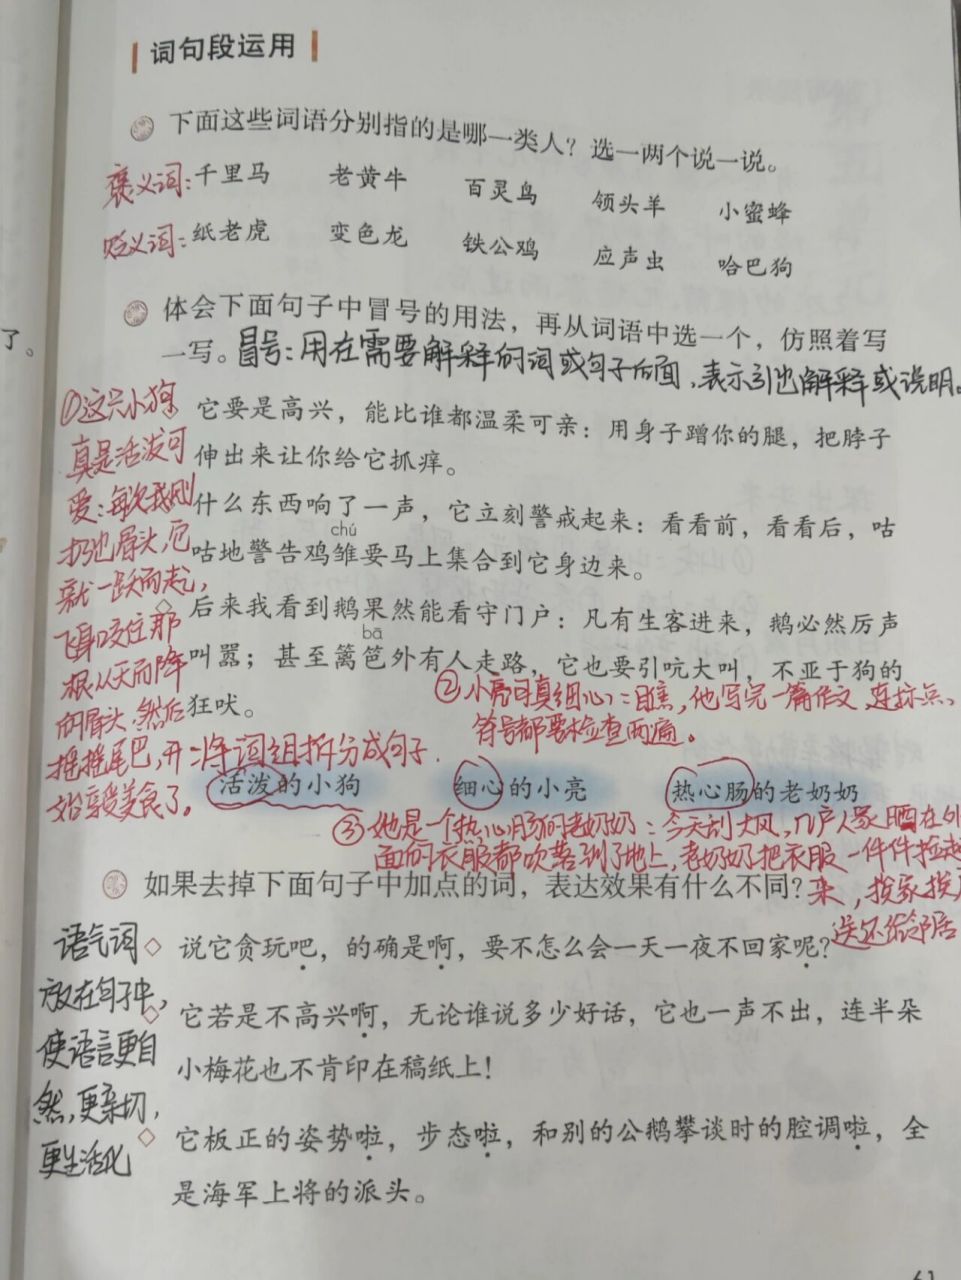 词句段运用
下面这些词语分别指的是哪一类人？选一两个说一说。
褒义词：千里马 老黄牛 百灵鸟 领头羊 小蜜蜂
贬义词：纸老虎 变色龙 铁公鸡 应声虫 哈巴狗
体会下面句子中冒号的用法，再从词语中选一个，仿照着写
一写。冒号：用在需要解释的词或句子后面，表示引出解释或说明。
了。
①这只小狗
真是活泼可
爱：每次我刚
扔出骨头，它
就一跃而起，
飞身咬住那
根从天而降
的骨头，然后
摇摇尾巴，开
始享受美食了。
它要是高兴，能比谁都温柔可亲：用身子蹭你的腿，把脖子
伸出来让你给它抓痒。
什么东西响了一声，它立刻警戒起来：看看前，看看后，咕
chú
咕地警告鸡雏要马上集合到它身边来。
后来我看到鹅果然能看守门户：凡有生客进来，鹅必然厉声
bā
叫嚣；甚至篱笆外有人走路，它也要引吭大叫，不亚于狗的
狂吠。
②小亮可真细心：瞧，他写完一篇作文，连标点
符号都要检查两遍。
将词组拆分成句子
活泼的小狗 细心的小亮 热心肠的老奶奶
③她是一个热心肠的老奶奶：今天刮大风，几户人家晒在外
面的衣服都吹落到了地上，老奶奶把衣服一件件捡起
来，挨家挨户
送还给邻居
如果去掉下面句子中加点的词，表达效果有什么不同？
语气词
放在句子中，
使语言更自
然，更亲切，
更生活化
说它贪玩吧，的确是啊，要不怎么会一天一夜不回家呢？
它若是不高兴啊，无论谁说多少好话，它也一声不出，连半朵
小梅花也不肯印在稿纸上！
它板正的姿势啦，步态啦，和别的公鹅攀谈时的腔调啦，全
是海军上将的派头。
61